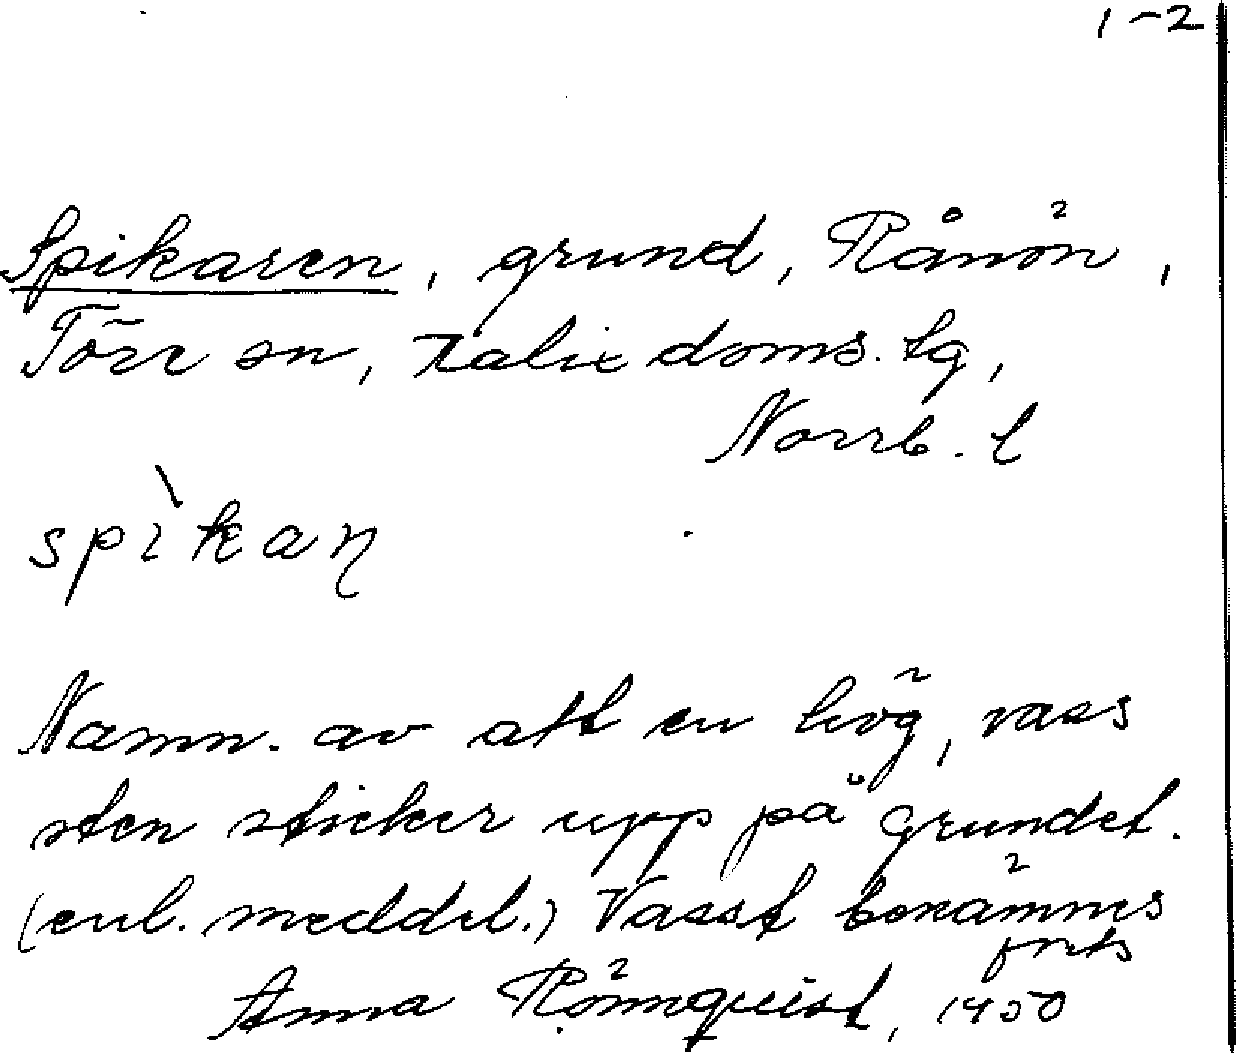 1-2
Spikaren, grund, Rånön,
Töre sn, Kalix doms. lg,
Norrb. l
spìkaɳ
Namn. av att en hög, vass
sten sticker upp på grundet.
(enl. meddel.) Vasst benämnes
forts
Anna Rönnquist, 1950